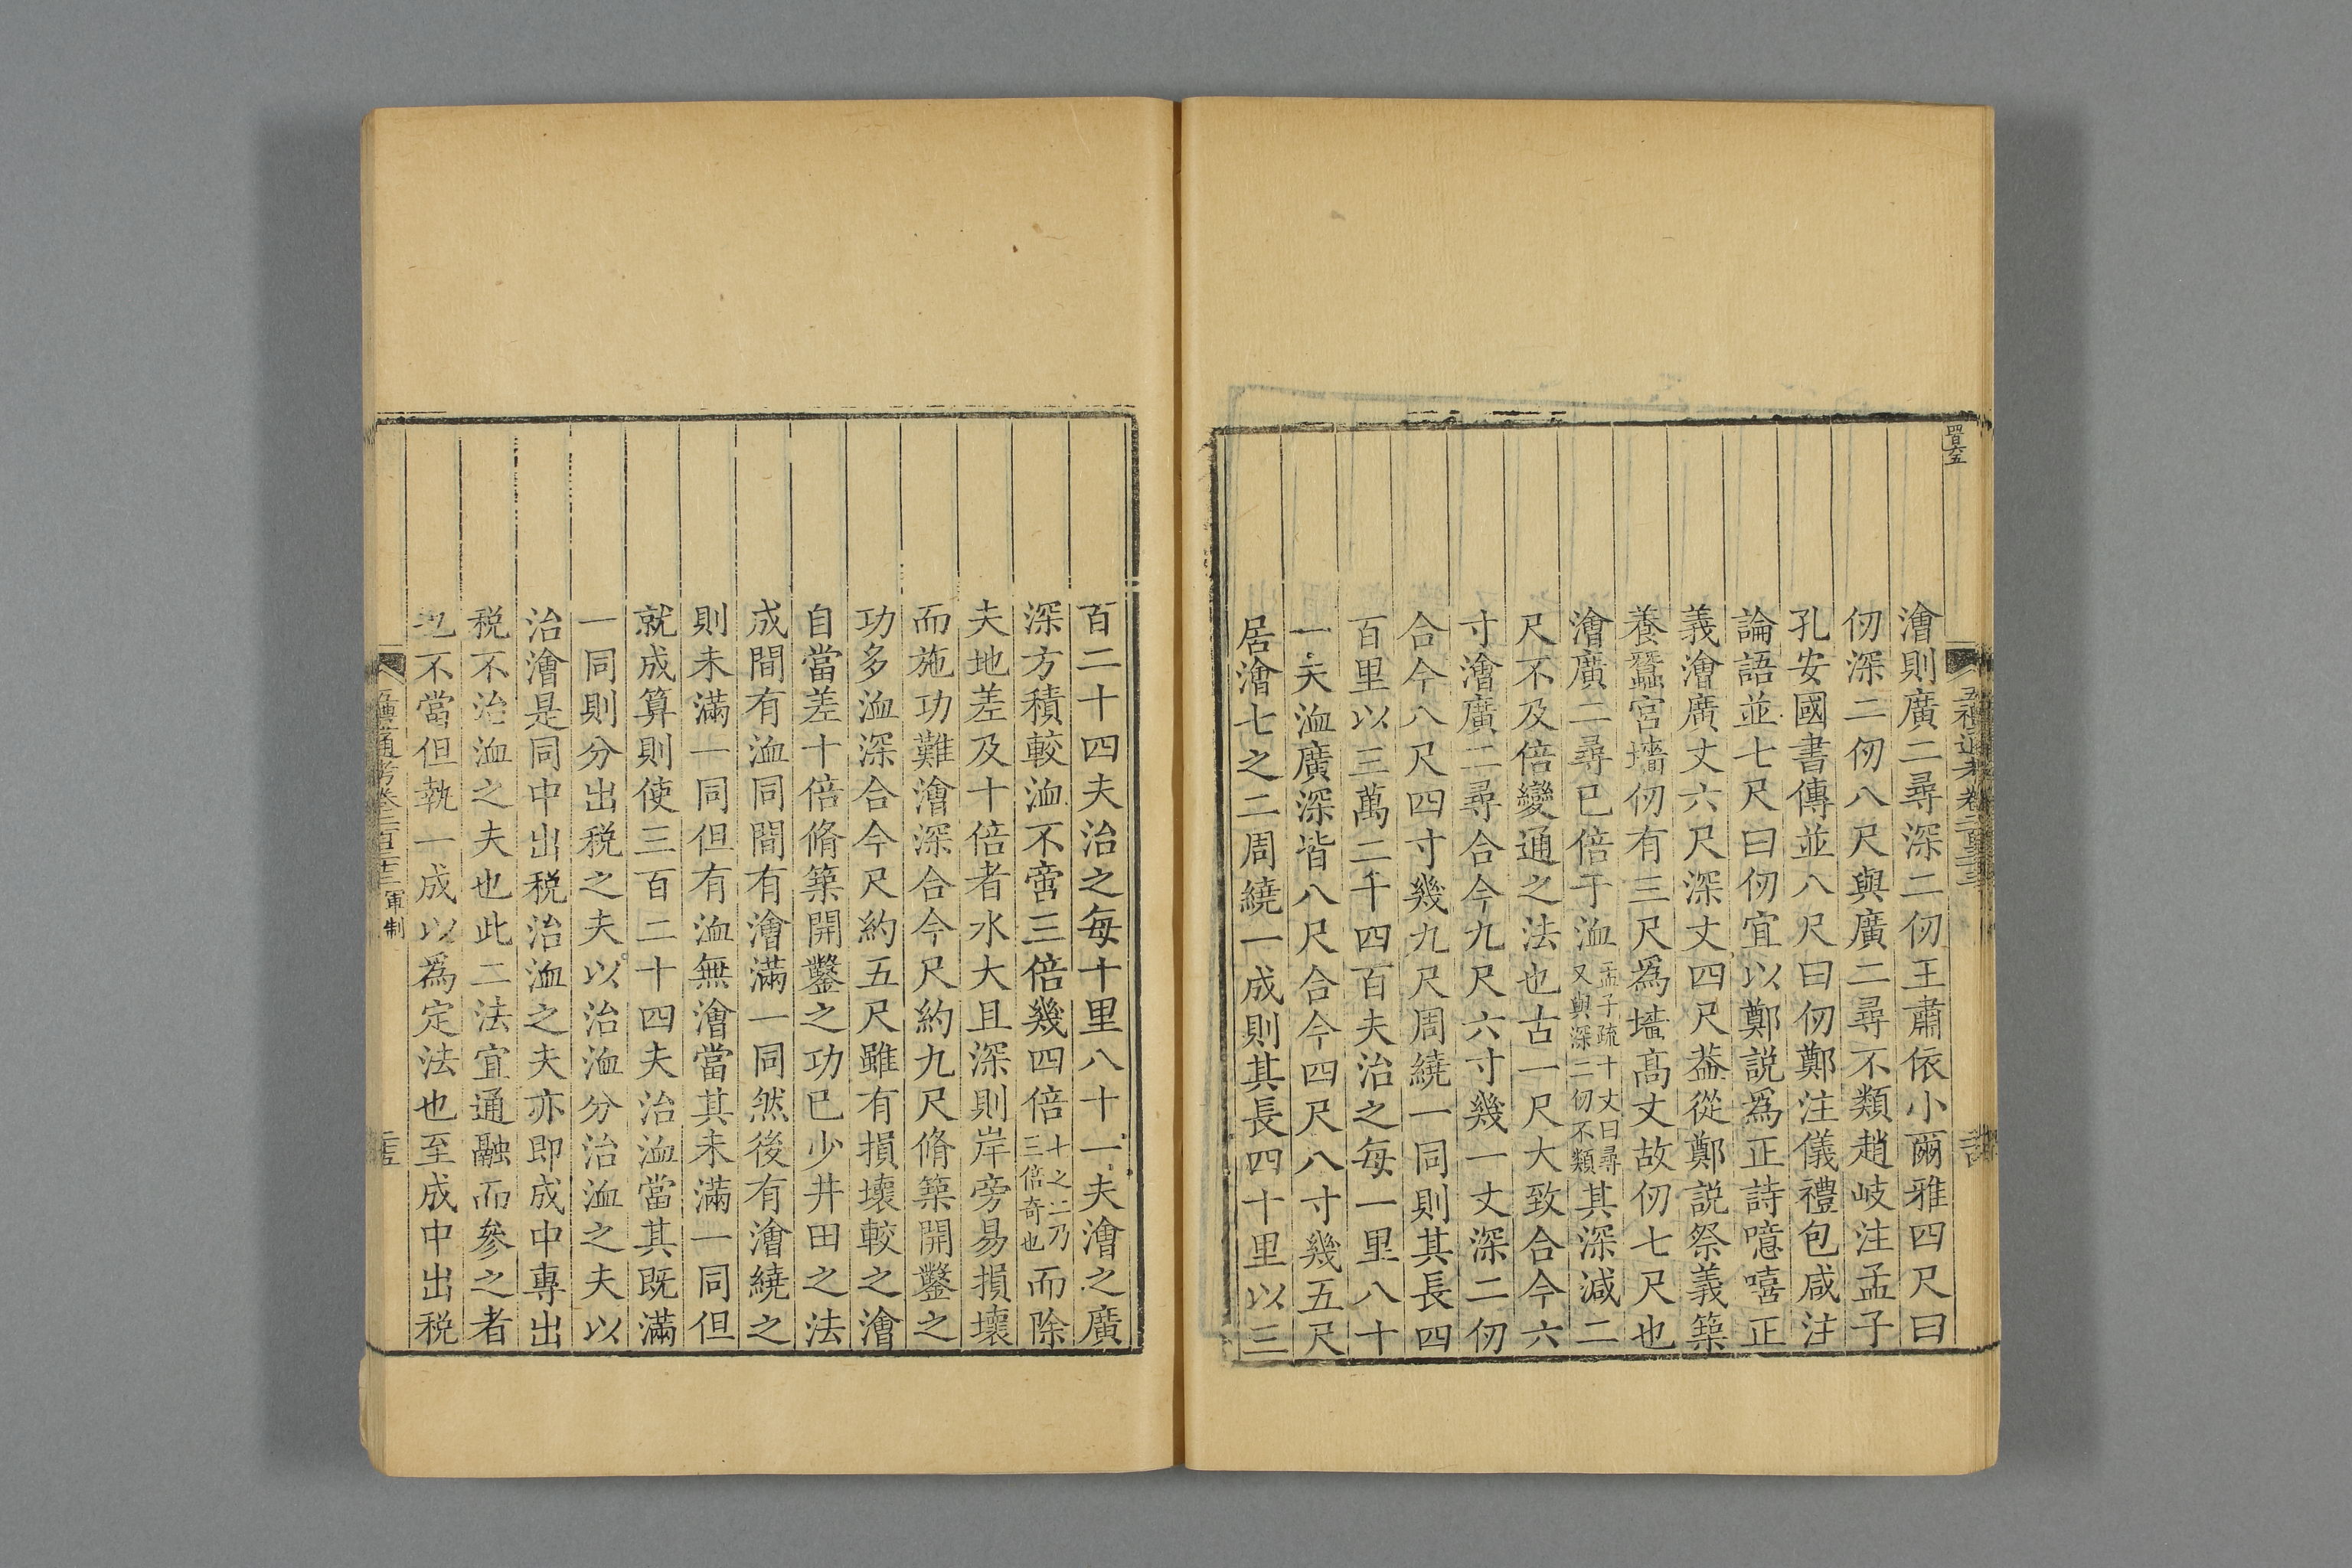 澮則廣二尋深二仞王肅依小爾雅四尺曰
仞深二仞八尺與廣二尋不類趙岐注孟子
孔安國書傳並八尺曰仞鄭注儀禮包咸注
論語並七尺曰仞宜以鄭説爲正詩噫嘻正
義澮廣丈六尺深丈四尺葢從鄭説祭義築
養蠶宮墻仞有三尺爲墻髙丈故仞七尺也
澮廣二尋已倍于洫孟子疏十丈曰尋又與深二仞不類其深減二
尺不及倍變通之法也古一尺大致合今六
寸澮廣二尋合今九尺六寸幾一丈深二仞
合今八尺四寸幾九尺周繞一同則其長四
百里以三萬二千四百夫治之每一里八十
一夫洫廣深皆八尺合今四尺八寸幾五尺
居澮七之二周繞一成則其長四十里以三
百二十四夫治之每十里八十一夫澮之廣
深方積較洫不啻三倍幾四倍十之二乃三倍奇也而除
夫地差及十倍者水大且深則岸旁易損壞
而施功難澮深合今尺約九尺脩築開鑿之
功多洫深合今尺約五尺雖有損壞較之澮
自當差十倍脩築開鑿之功已少井田之法
成間有洫同間有澮滿一同然後有澮繞之
則未滿一同但有洫無澮當其未滿一同但
就成算則使三百二十四夫治洫當其既滿
一同則分出税之夫以治洫分治洫之夫以
治澮是同中出税治洫之夫亦即成中專出
税不治洫之夫也此二法宜通融而參之者
也不當但執一成以爲定法也至成中出税
五禮通考卷二百三十三 軍制